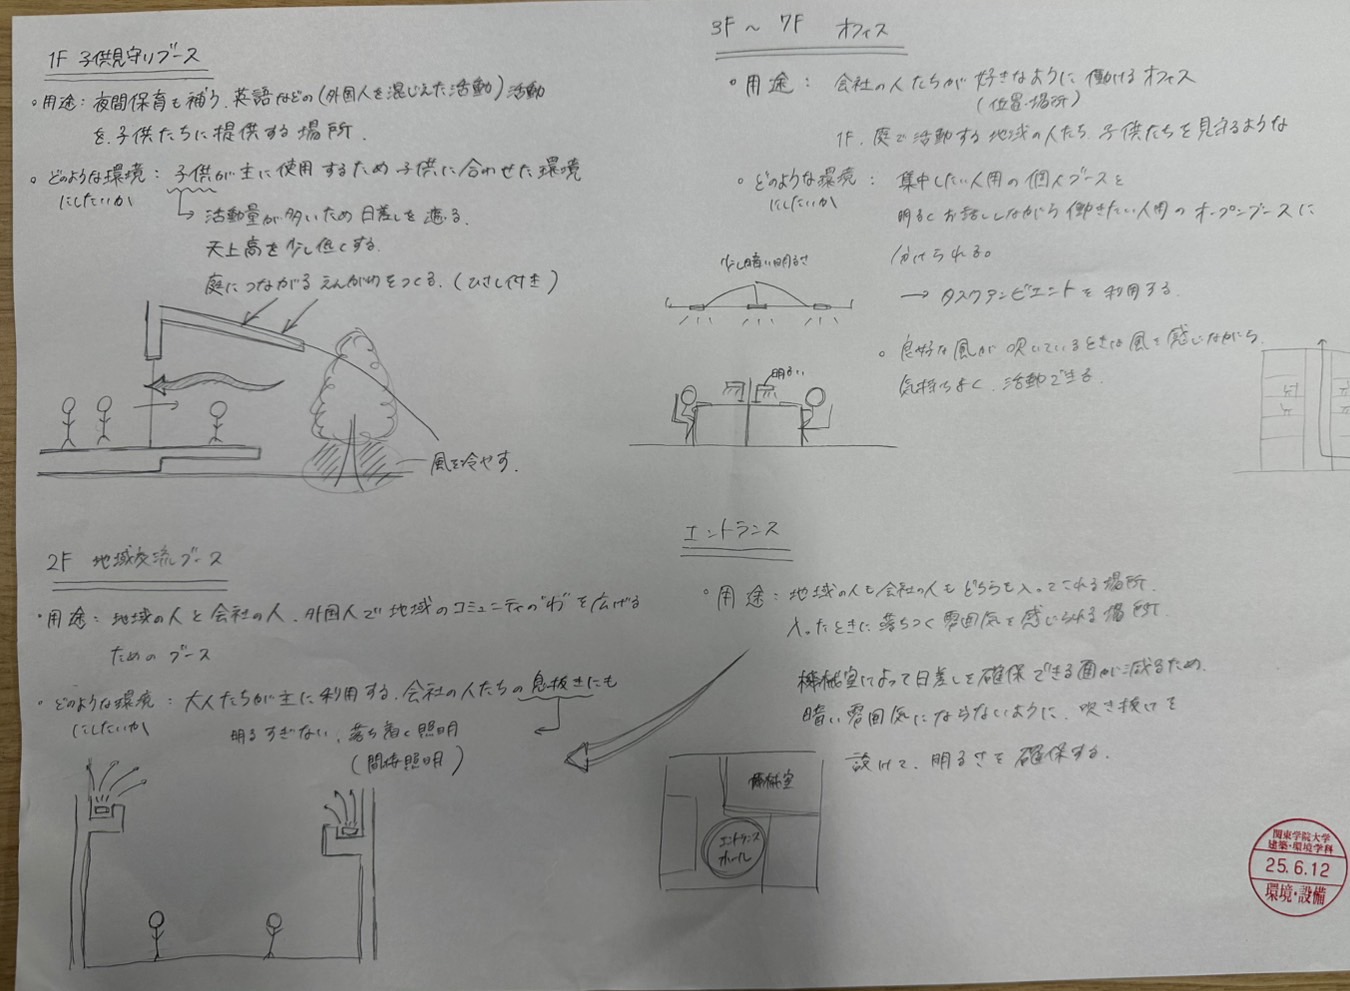 1F 子供見守りブース
・用途：夜間保育も補う、英語などの(外国人を混じえた活動)活動
を、子供たちに提供する場所。
・どのような環境：子供が主に使用するため子供に合わせた環境
にしたいか
→ 活動量が多いため日差しを遮る。
天上高を少し低くする。
庭につながるえんがわをつくる。(ひさし付き)
風を冷やす。
2F 地域交流ブース
・用途：地域の人と会社の人、外国人で地域のコミュニティの"わ"を広げる
ためのブース
・どのような環境：大人たちが主に利用する、会社の人たちの息抜きにも
にしたいか
明るすぎない、落ち着く照明
(間接照明)
3F～7F オフィス
・用途：会社の人たちが好きなように働けるオフィス
(位置・場所)
1F、庭で活動する地域の人たち、子供たちを見守るような
・どのような環境：集中したい人用の個人ブースと
にしたいか
明るくお話ししながら働きたい人用のオープンブースに
分けられる。
→ タスクアンビエントを利用する。
少し暗い明るさ
明るい
・良好な風が吹いているときは風を感じながら、
気持ちよく、活動できる。
エントランス
・用途：地域の人も会社の人もどちらも入ってこれる場所。
入ったときに落ちつく雰囲気を感じられる場所。
機械室によって日差しを確保できる面が減るため、
暗い雰囲気にならないように、吹き抜けを
設けて、明るさを確保する。
機械室
エントランス
ホール
関東学院大学
建築・環境学科
25.6.12
環境・設備